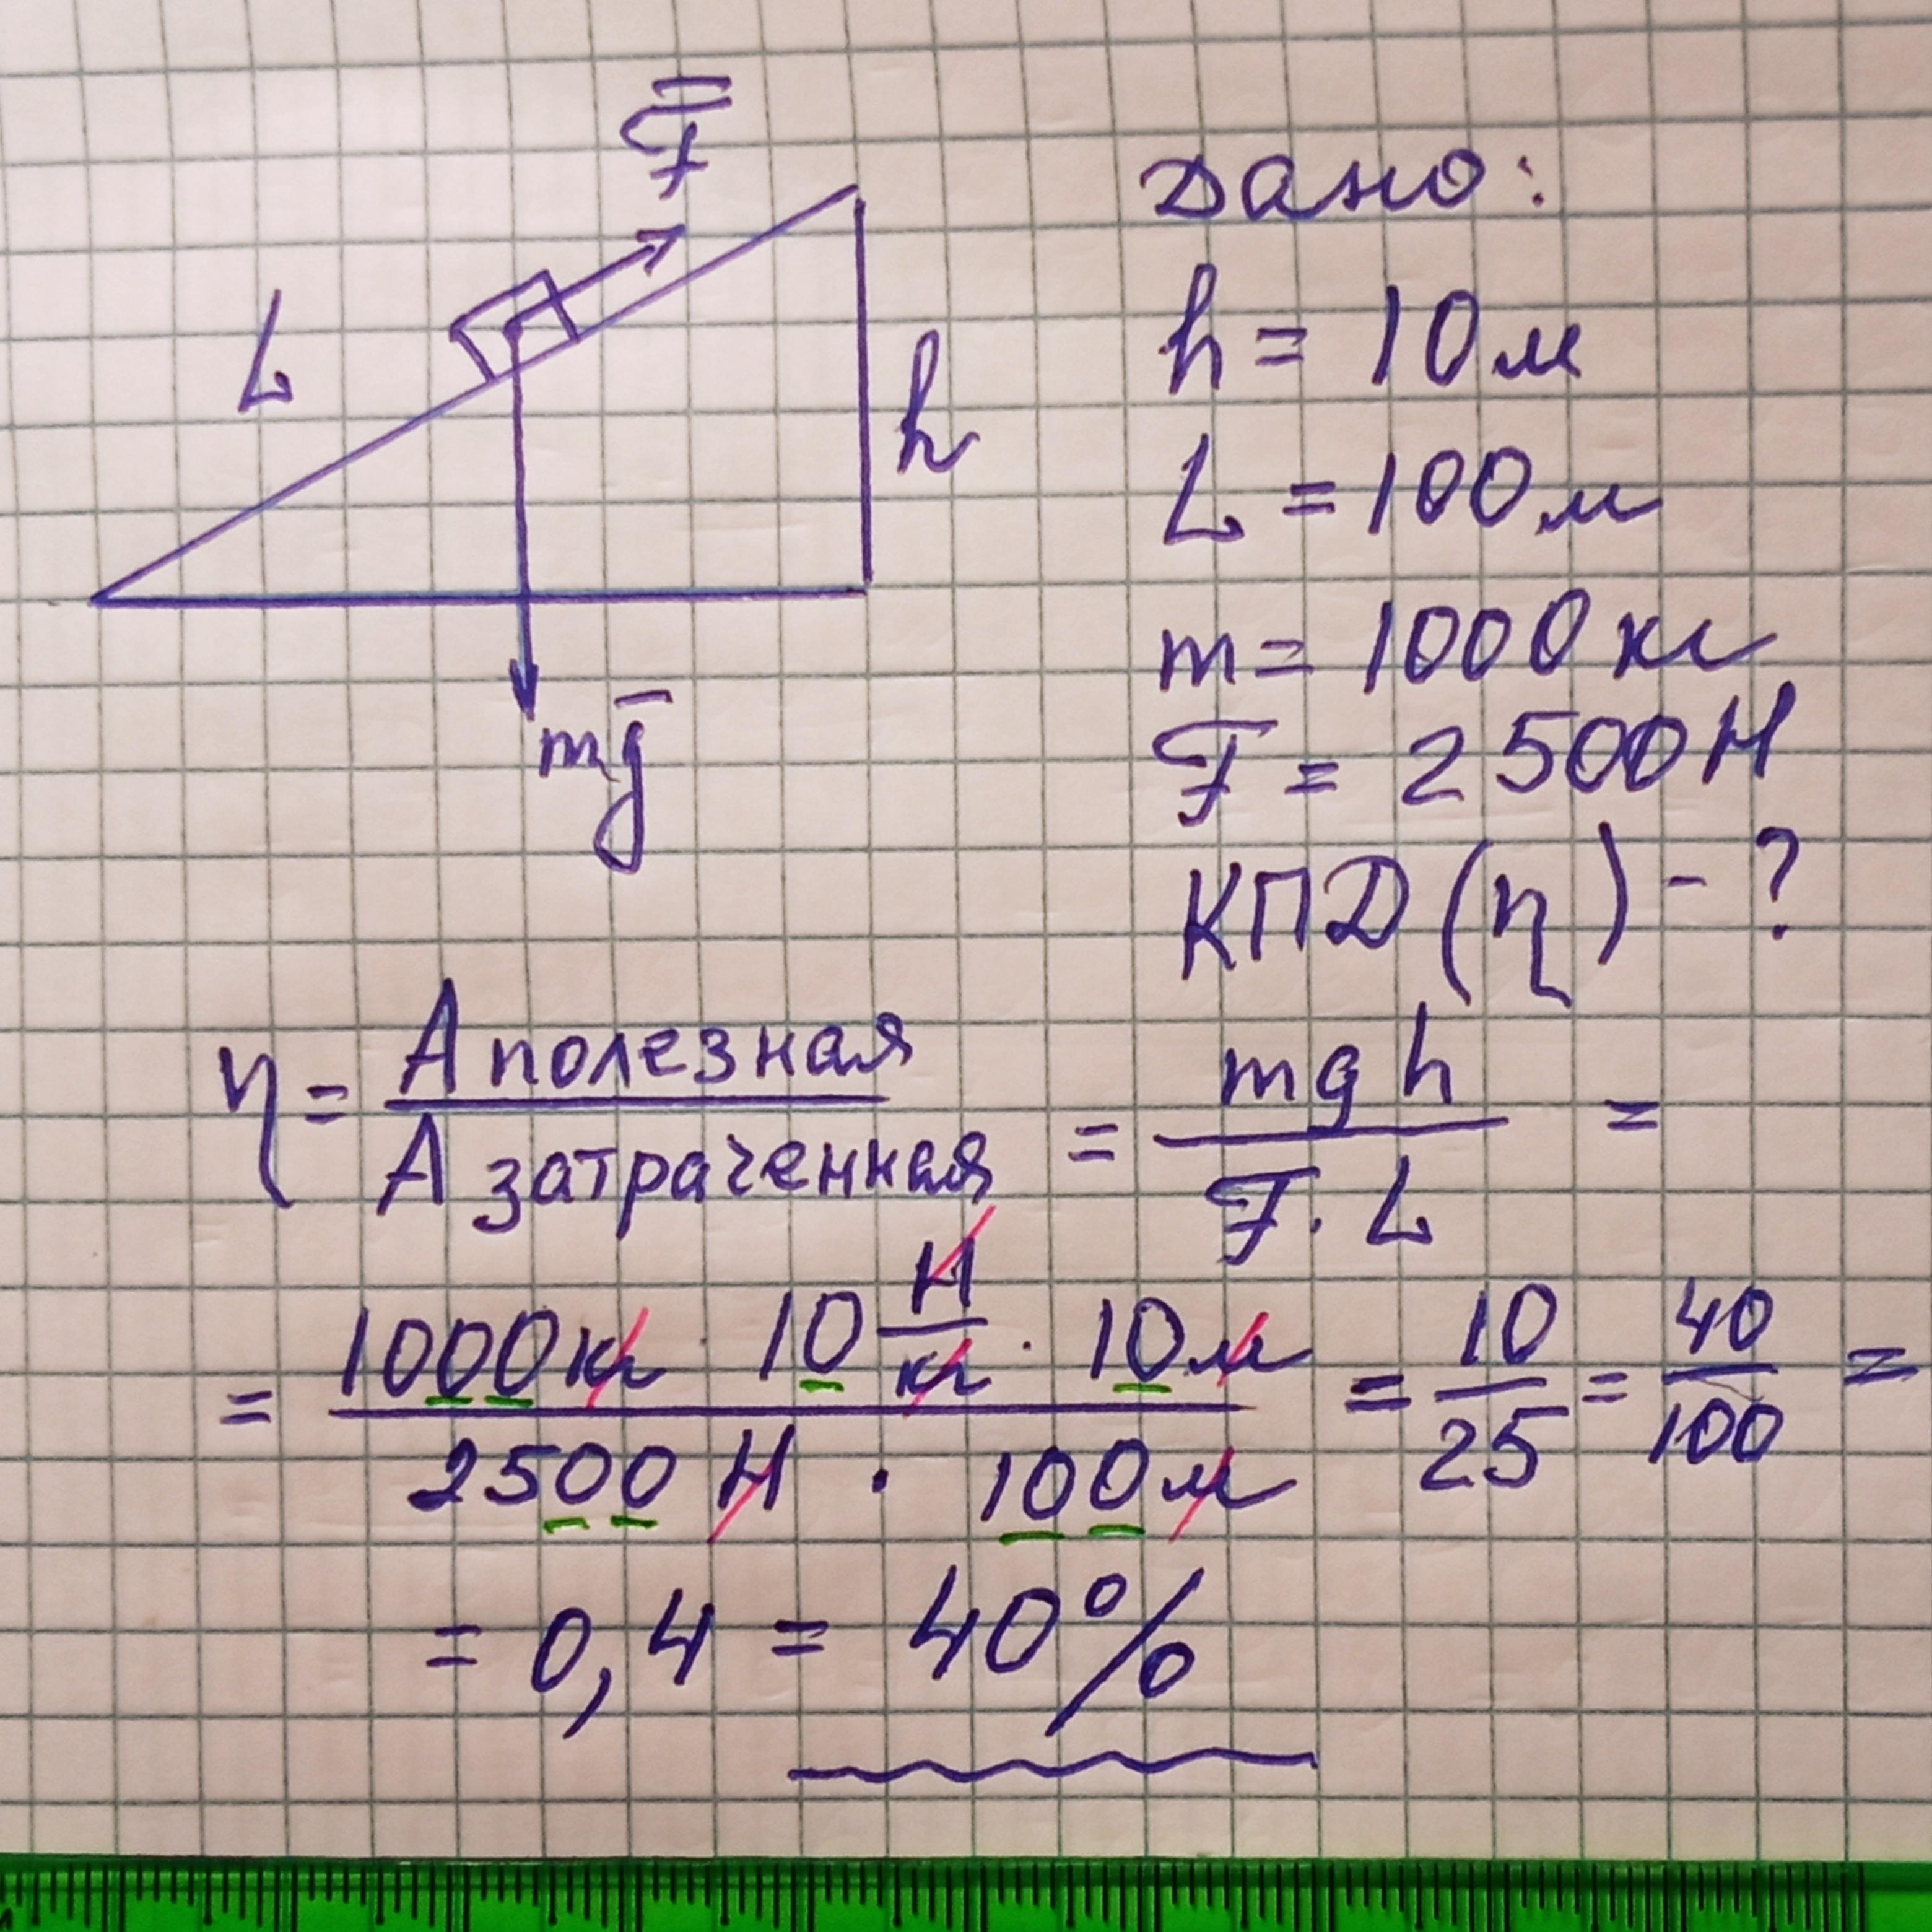 F̅
L
h
mg̅
Дано:
h = 10 м
L = 100 м
m = 1000 кг
F = 2500 Н
КПД (η) - ?
η = А полезная / А затраченная = mgh / F · L =
= 1000 кг · 10 Н/кг · 10 м / 2500 Н · 100 м = 10/25 = 40/100 =
= 0,4 = 40%